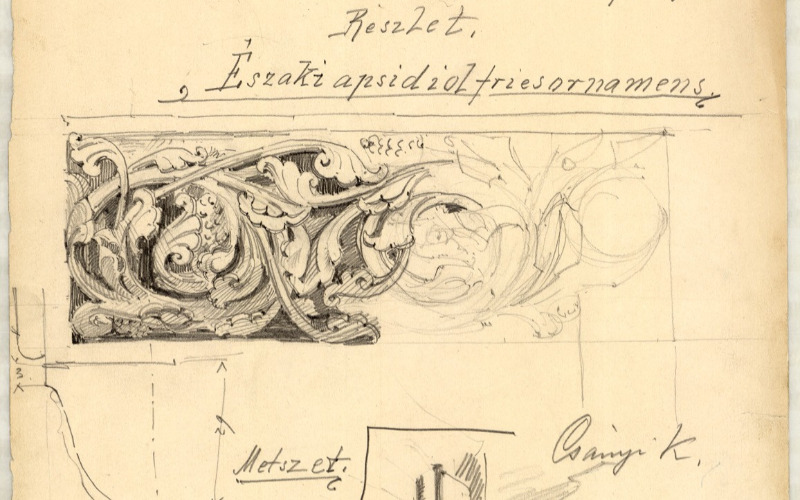 Részlet.
Északi apsidiol friesornamens.
Metszet.
Csányi K.